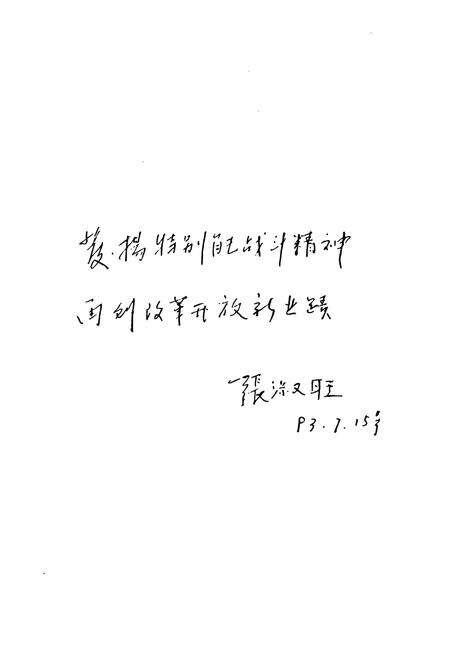 發揚特别能战斗精神
再创改革开放新业績
張淑旺
93.7.15号